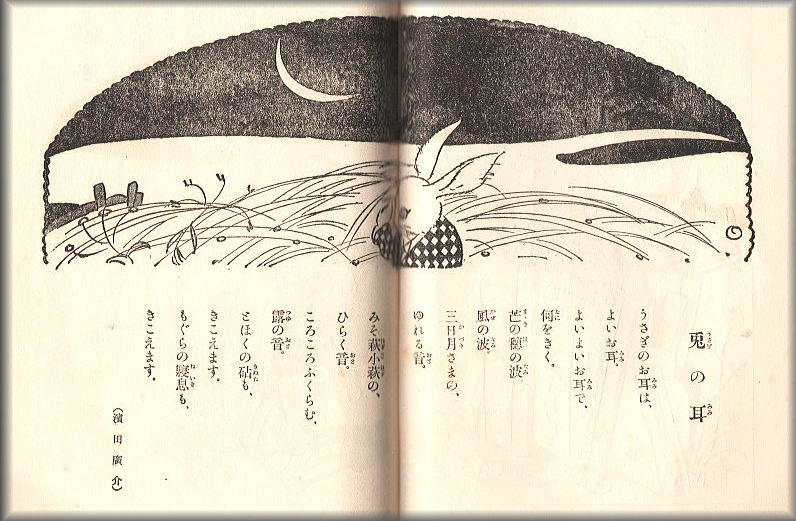 兎の耳
うさぎのお耳は、
よいお耳。
よいよいお耳で、
何をきく。
芒の穂の波、
風の波。
三日月さまの、
ゆれる音。
みそ萩小萩の、
ひらく音。
ころころふくらむ、
露の音。
とほくの砧も、
きこえます。
もぐらの寝息も、
きこえます。
（濱田廣介）